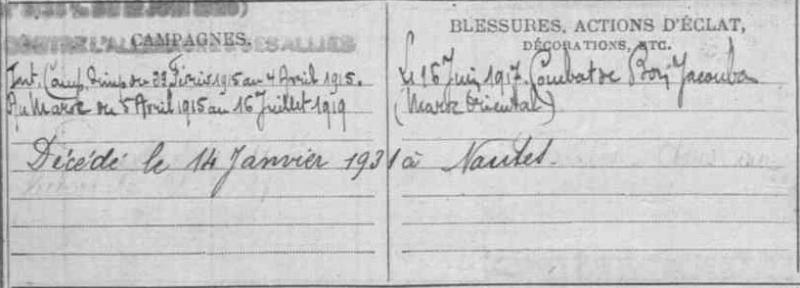 CONTRE L'ALLEMAGNE ET SES ALLIÉS
CAMPAGNES.
Int. Camp. Simp. du Février 1915 au 4 Avril 1915.
Au Maroc du 5 Avril 1915 au 16 Juillet 1919
BLESSURES, ACTIONS D'ÉCLAT,
DÉCORATIONS, ETC.
Le 16 Juin 1917. Combat de Borj Yacouba
(Maroc Oriental)
Décédé le 14 Janvier 1931 à Nantes.